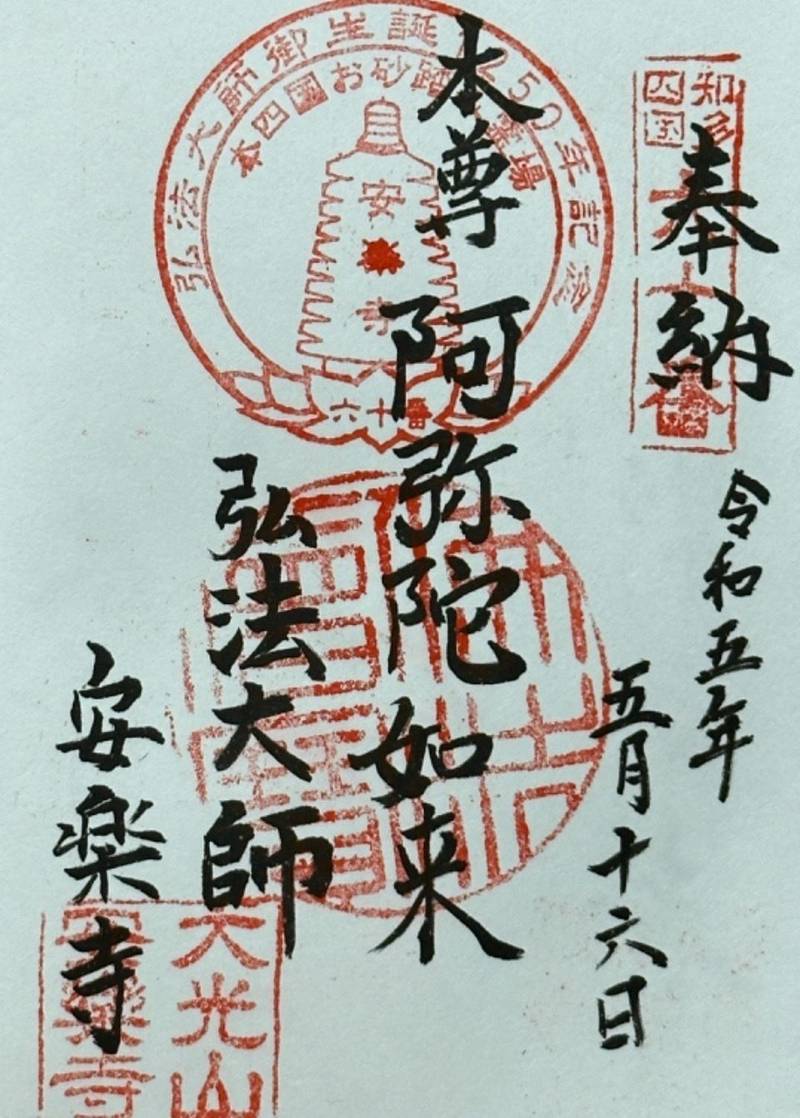 奉納
令和五年
五月十六日
本尊 阿弥陀如来
弘法大師
安楽寺
弘法大師御生誕1250年記念
本四國お砂踏霊場
安
寺
六十番
知多
四国
大光山
安楽寺